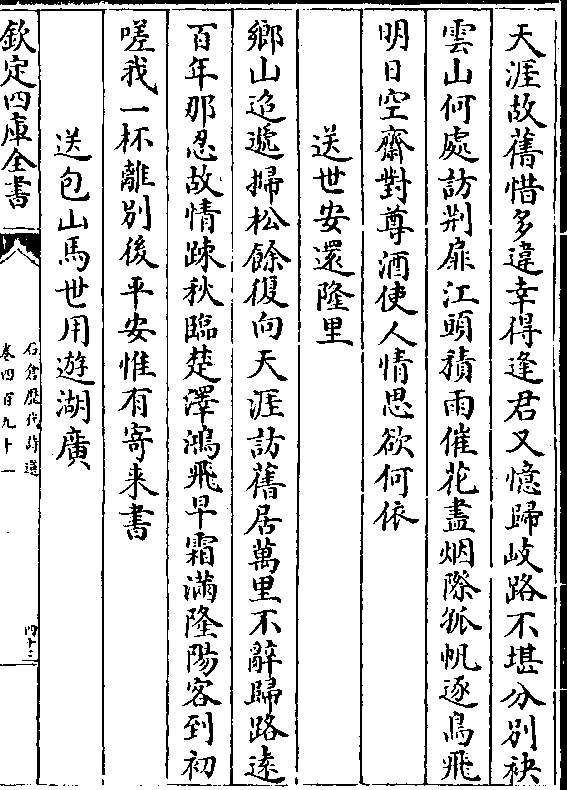 天涯故舊惜多違幸得逢君又憶歸岐路不堪分別袂
雲山何處訪荆扉江頭積雨催花盡烟際孤帆逐鳥飛
明日空齋對尊酒使人情思欲何依
送世安還隆里
鄉山迢遞掃松餘復向天涯訪舊居萬里不辭歸路逺
百年那忍故情踈秋臨楚澤鴻飛早霜滿隆陽客到初
嗟我一杯離别後平安惟有寄来書
送包山馬世用遊湖廣
欽定四庫全書
石倉歷代詩選
卷四百九十一
四十三